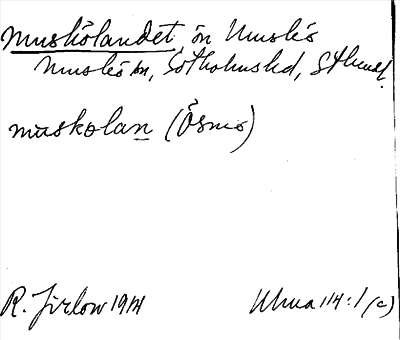 Muskölandet, ön Muskö
Muskö sn, Sotholms hd, Sthms l.
muskolan (Ösmo)
R. Jirlow 1914
Uhua 114:1 (c)